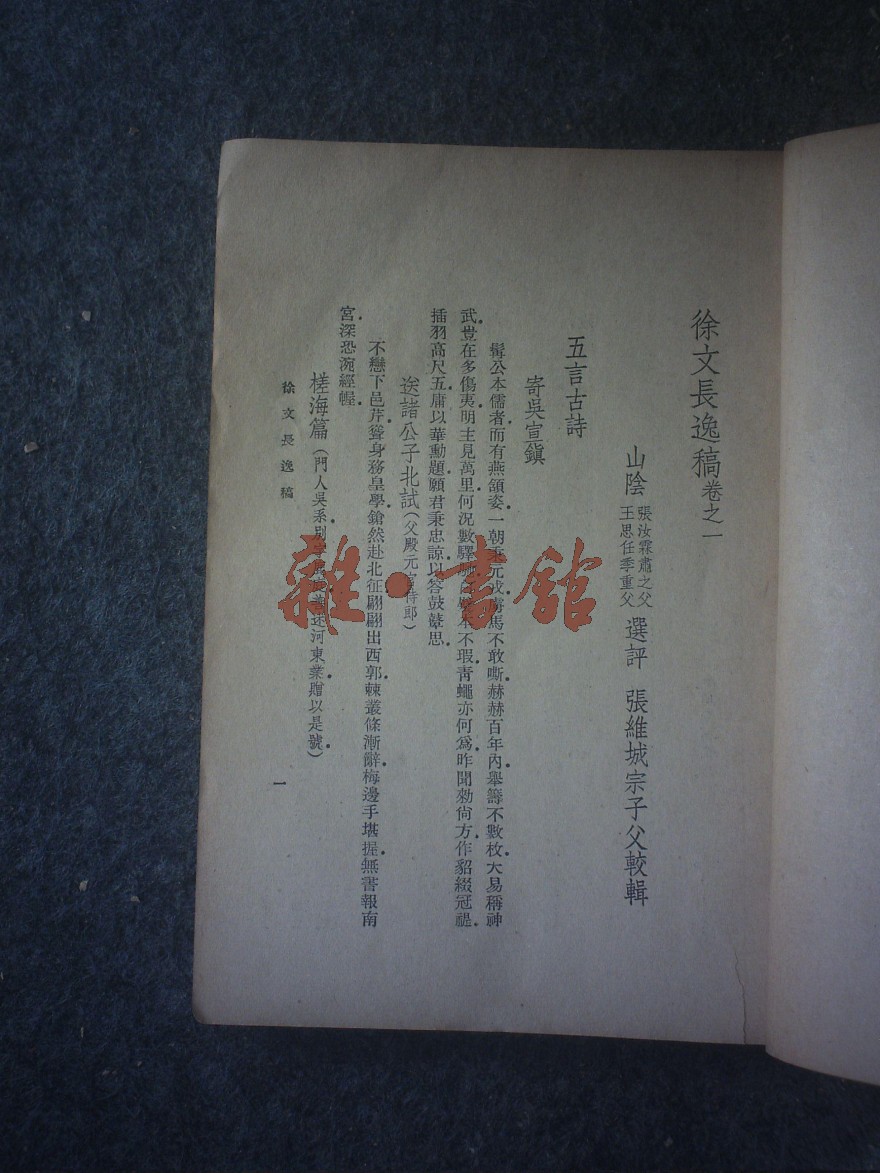 徐文長逸稿卷之一
山陰 張汝霖肅之父 王思任季重父 選評 張維城宗子父較輯
五言古詩
寄吳宣鎭
髯公本儒者．而有燕頷姿．一朝秉元戎．虜馬不敢嘶．赫赫百年內．舉籌不數枚．大易稱神
武．豈在多傷夷．明主見萬里．何況數驛 不瑕．青蠅亦何爲．昨聞勑尙方．作貂綴冠禔．
插羽高尺五．庸以華勳題．願君秉忠諒．以答鼓鼙思．
送諸公子北試（父殿元官侍郎）
不戀下邑芹．聳身務皇學．鎗然赴北征．翩翩出西郭．棘叢條漸辭．梅邊手堪握．無書報南
宮．深恐涴經幄．
槎海篇（門人吳系別 述河東業．贈以是號．）
徐文長逸稿
一
雜·書舘